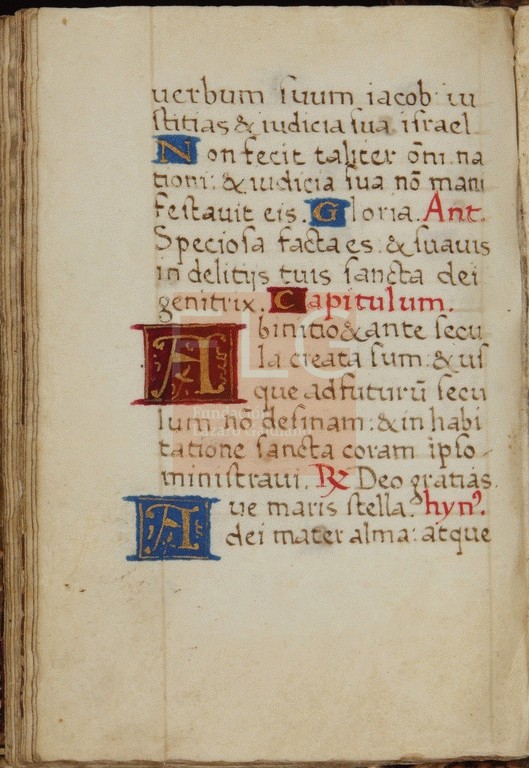 uerbum suum iacob: iu
stitias & iudicia sua israel
Non fecit taliter om̄i na
tioni: & iudicia sua nō mani
festauit eis. Gloria. Ant.
Speciosa facta es: & suauis
in delitijs tuis sancta dei
genitrix. Capitulum.
Ab initio & ante secu
la creata sum: & us
que ad futurū secu
lum no desinam: & in habi
tatione sancta coram ipso
ministraui. ℟ Deo gratias.
Aue maris stella. hyn⁹.
dei mater alma: atque
FLG
Fundación
Lázaro Galdiano